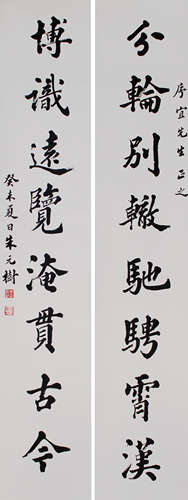 分輪別轍馳騁霄漢
序宜先生正之
博識遠覽淹貫古今
癸未夏日朱元樹